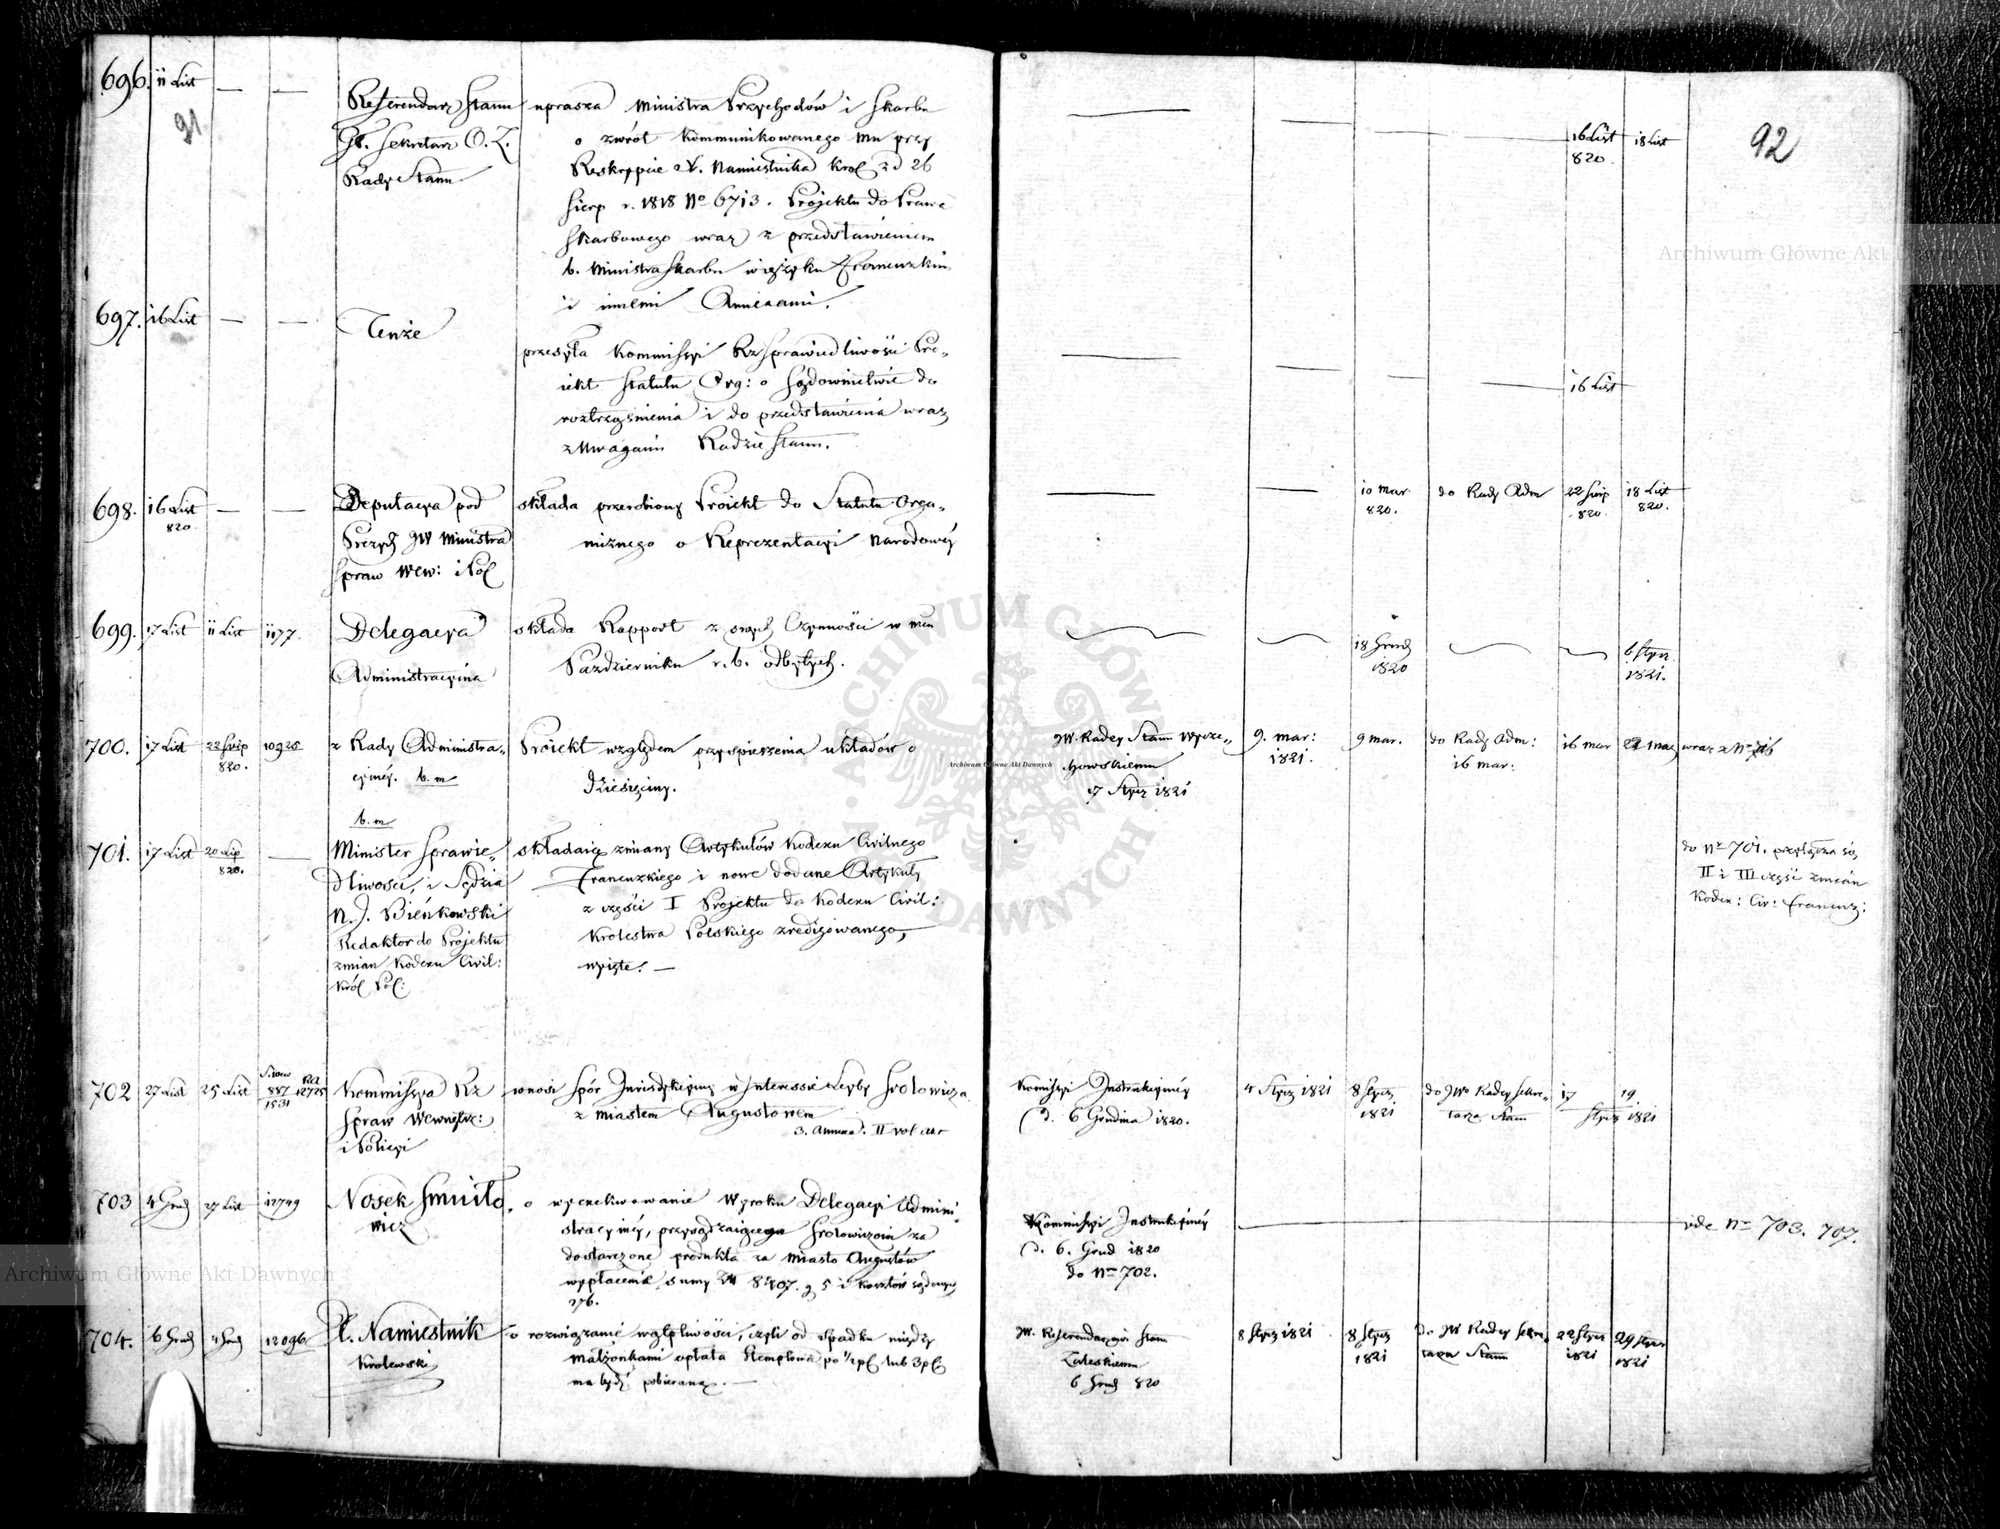 696. 11 List — —
91
Referendarz Stanu
Gł. Sekretarz O. Z.
Rady Stanu
uprasza Ministra Przychodów i Skarbu
o zwrót kommunikowanego mu przy
Reskrypcie X. Namiestnika Król z d 26
Sierp r. 1818 No 6713. Projektu do Prawa
Skarbowego wraz z przedstawieniem
b. Ministra Skarbu w języku Francuzkim
i innemi Annexami.
16 List
820
18 List
92
697. 16 List — —
Tenże
przesyła Kommissyi Rz Sprawiedliwości Pro„
iekt Statutu Org: o Sądownictwie do
roztrząśnienia i do przedstawienia wraz
z Uwagami Radzie Stanu.
16 List
698. 16 List
820
— —
Deputacya pod
Prezyd JW Ministra
Spraw Wew: i Pol
składa przerobiony Proiekt do Statutu Orga„
nicznego o Reprezentacyi Narodowéy
10 mar.
820.
do Rady Adm
22 Sierp
820.
18 List
820.
699. 17 List 11 List 1177.
Delegacya
Administracyina
składa Rapport z swych Czynności w mcu
Październiku r. b. odbytych.
18 Grud
1820
6 Stycz
1821.
700. 17 List 22 Sierp
820.
10925
z Rady Administra„
cyinéy. b. m
Proiekt względem przyspieszenia układów o
Dziesięciny.
JW. Radcy Stanu Wycze„
chowskiemu
17 Stycz 1821
9. mar:
1821.
9 mar.
do Rady Adm:
16 mar:
16 mar
22 maj
wraz z No
b. m
701. 17 List 20 Lip
820.
—
Minister Sprawie„
dliwości, i Sędzia
N. J. Bieńkowski
Redaktor do Projektu
zmian Kodexu Civil:
Król Pol:
składaią zmiany Artykułów Kodexu Civilnego
Francuzkiego i nowe dodane Artykuły
z części I Projektu do Kodexu Civil:
Krolestwa Polskiego zredigowanego,
wyięte. —
do No 701. przyłącza się
II i III część zmian
Kodex: Civ: Francuz:
702 27 List 25 List
887 12725
1531
Kommissya Rz
Spraw Wewnętrz:
i Policyi
wnosi spór Jurisdykcyiny w Interessie Leyby Srolowicza
z miastem Augustowem
3. Annexa. II vol akt
Komissyi Instrukcyinéy
d. 6 Grudnia 1820.
4 Stycz 1821
8 Stycz
1821
do JW. Radcy Sekre„
tarza Stanu
17 19
Stycz 1821
703 4 Grud 27 List 12749
Nosek Smuiło„
wicz
o wyexekwowanie Wyroku Delegacyi Admini„
stracyinéy, przysądzaiącego Srolowiczowi za
dostarczone produkta za miasto Augustów
wypłacenie sumy Zł 8407. g 5 i kosztów sądowych
276.
Kommissyi Instrukcyinéy
d. 6. Grud 1820
do No 702.
vide No 703. 707.
704. 6 Grud 4 Grud 12096
X. Namiestnik
Królewski
o rozwiązanie wątpliwości, czyli od spadku między
małżonkami opłata stemplowa po 1/2 pC lub 3 pC
ma bydź pobieraną. —
JW. Referendarzowi Stanu
Zaleskiemu
6 Grud 820
8 Stycz 1821
8 Stycz
1821
do JW Radcy Sekre„
tarza Stanu
22 Stycz
1821
29 Stycz
1821
Archiwum Główne Akt Dawnych
Archiwum Główne Akt Dawnych
Archiwum Główne Akt Dawnych
ARCHIWUM GŁÓWNE AKT DAWNYCH